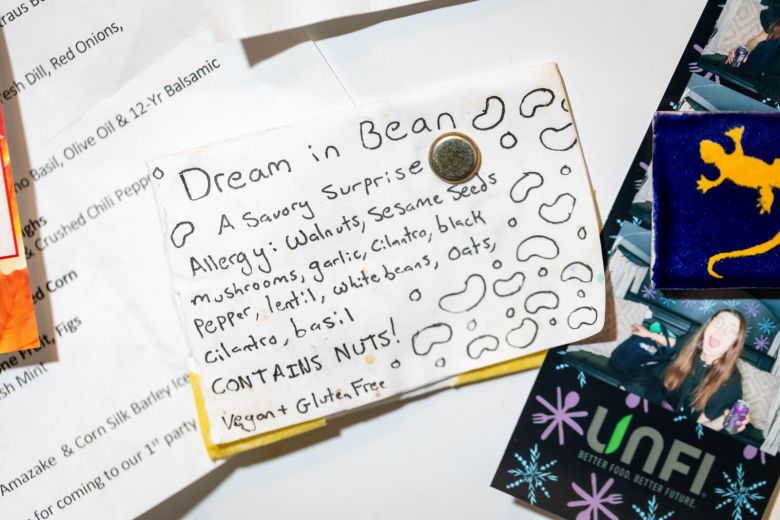 resh Dill, Red Onions,
Basil, Olive Oil & 12-Yr Balsamic
& Crushed Chili
Corn
Fruit, Figs
Mint
Amazake & Corn Silk Barley Ice
for coming to our 1st party
Dream in Bean
A Savory Surprise
Allergy: Walnuts, Sesame Seeds
mushrooms, garlic, Cilantro, black
Pepper, lentil, white beans, oats,
Cilantro, basil
CONTAINS NUTS!
Vegan + Gluten Free
UNFI
BETTER FOOD. BETTER FUTURE.